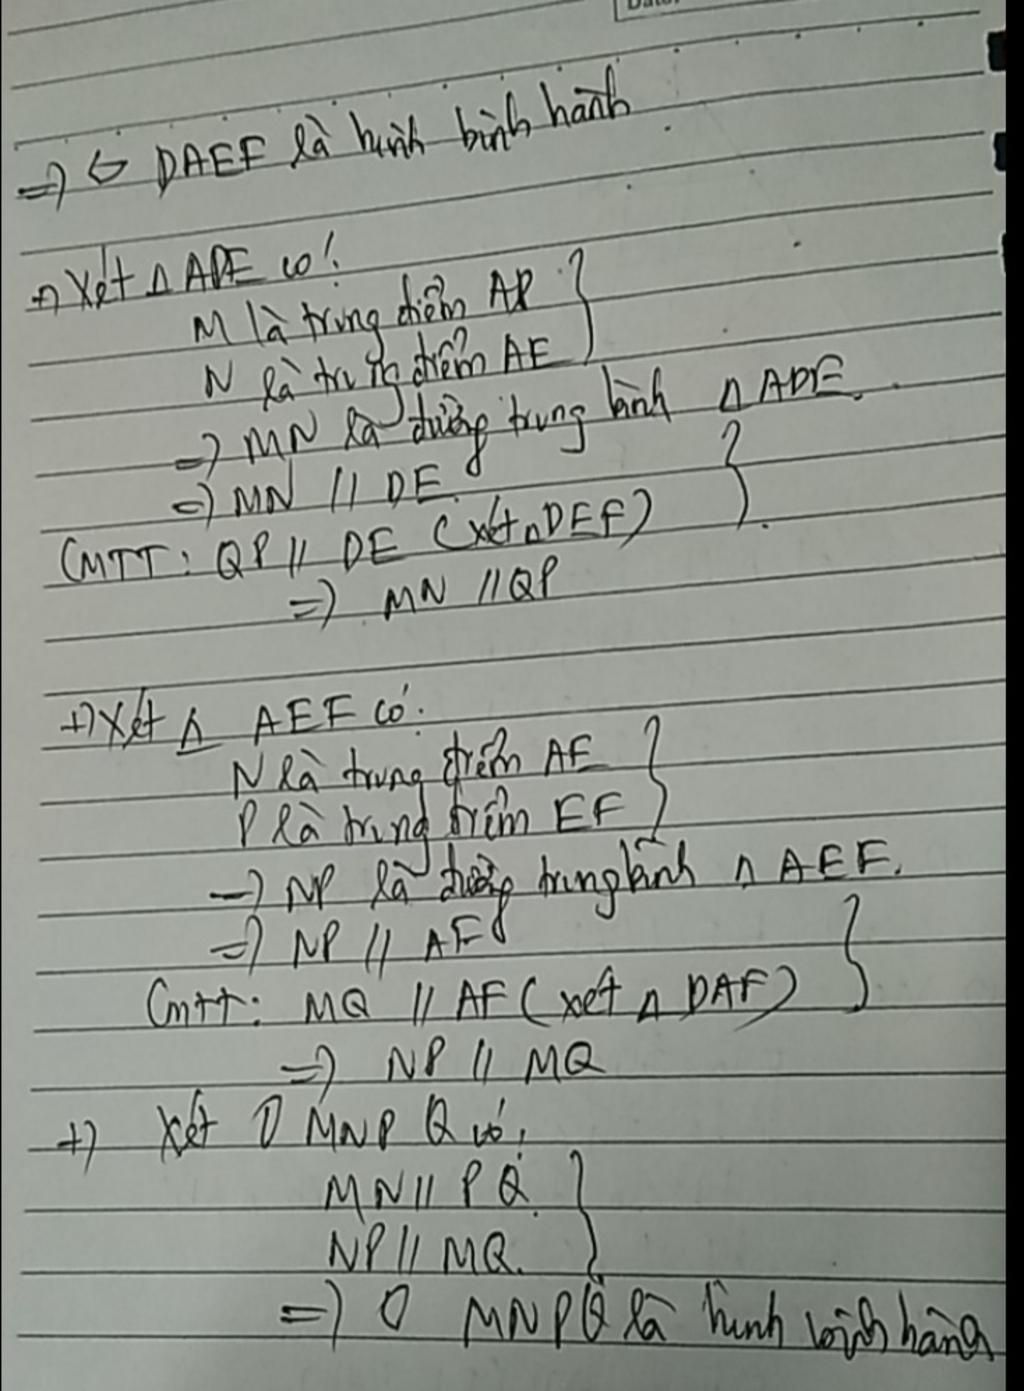 Date:
=> DAEF là hình bình hành
+) Xét Δ ADE có:
M là trung điểm AD
N là trung điểm AE
=> MN là đường trung bình Δ ADE.
=> MN // DE.
CMTT: QP // DE (xét Δ DEF)
=> MN // QP
+) Xét Δ AEF có:
N là trung điểm AE
P là trung điểm EF
=> NP là đường trung bình Δ AEF.
=> NP // AF
Cmtt: MQ // AF (xét Δ DAF)
=> NP // MQ
+) Xét MNPQ có:
MN // PQ.
NP // MQ.
=> MNPQ là hình bình hành